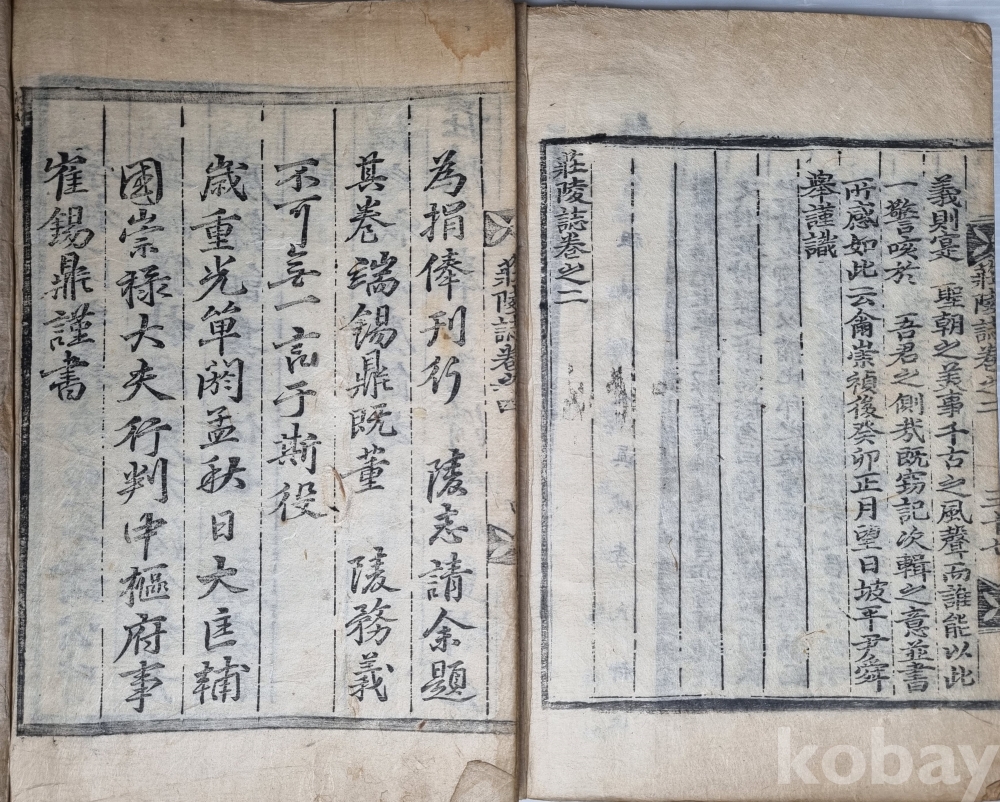 莊陵誌卷之二
義則寔 聖朝之美事千古之風聲而誰能以此
一謦咳於 吾君之側哉既窃記次輯之意並書
所感如此云爾崇禎後癸卯正月望日坡平尹舜
擧謹識
莊陵誌卷之二
莊陵誌卷之四
為捐俸刊行 陵志請余題
其卷端錫鼎既董 陵務義
不可無一言于斯役
歲重光單閼孟秋日大匡輔
國崇祿大夫行判中樞府事
崔錫鼎謹書
kobay